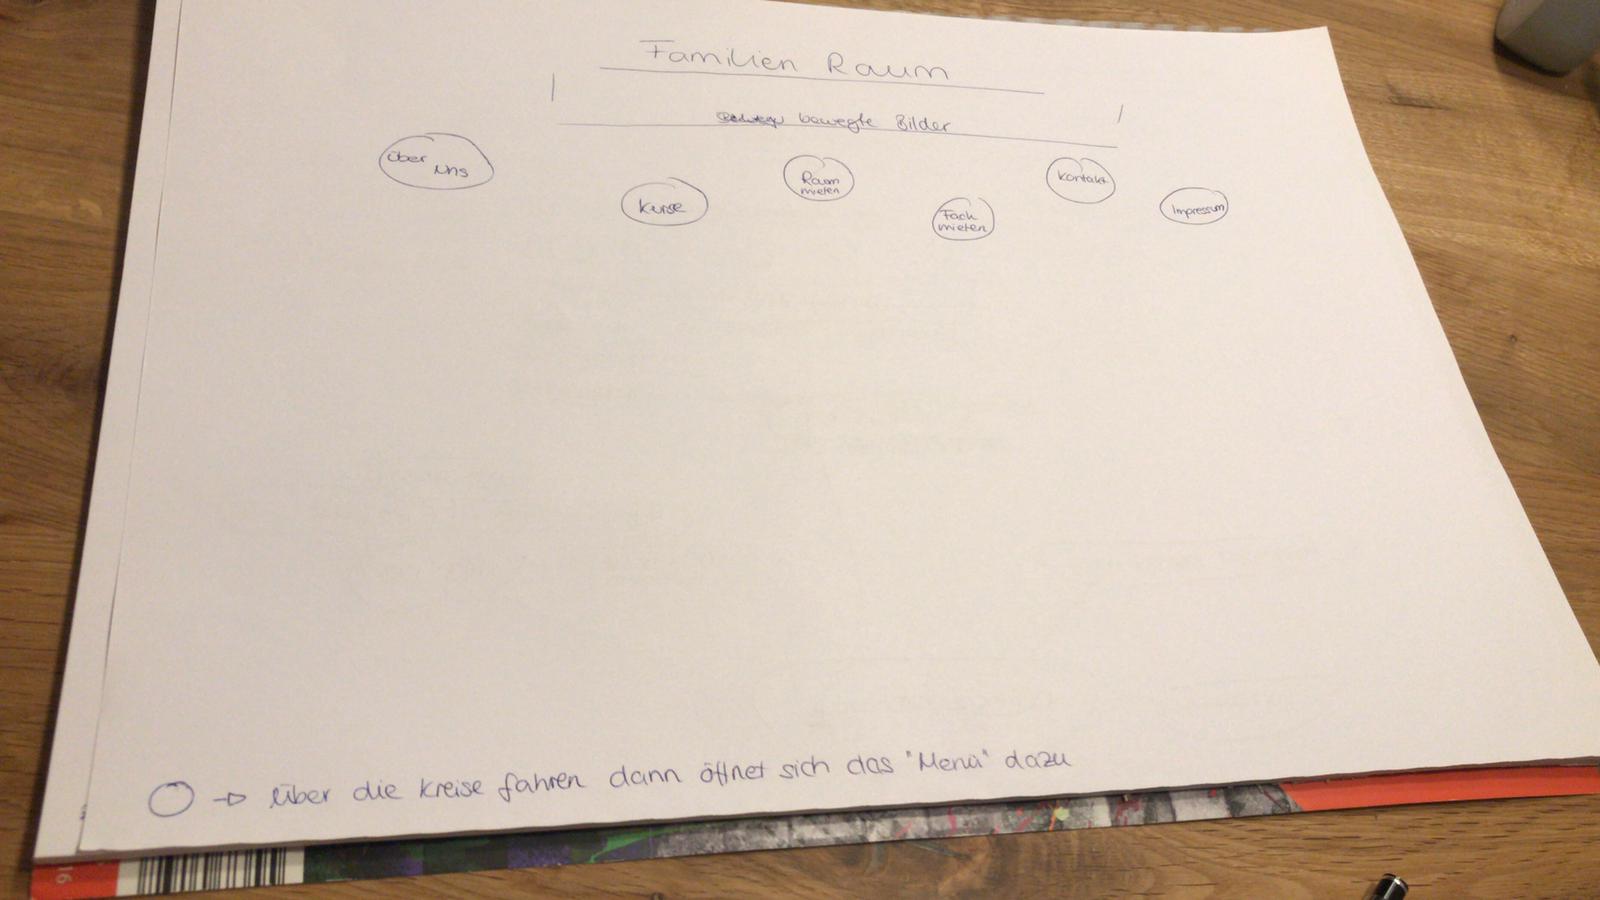 Familien Raum
bewegte Bilder
über uns
Kurse
Raum
mieten
Fach
mieten
Kontakt
Impressum
→ über die Kreise fahren dann öffnet sich das "Menü" dazu
16